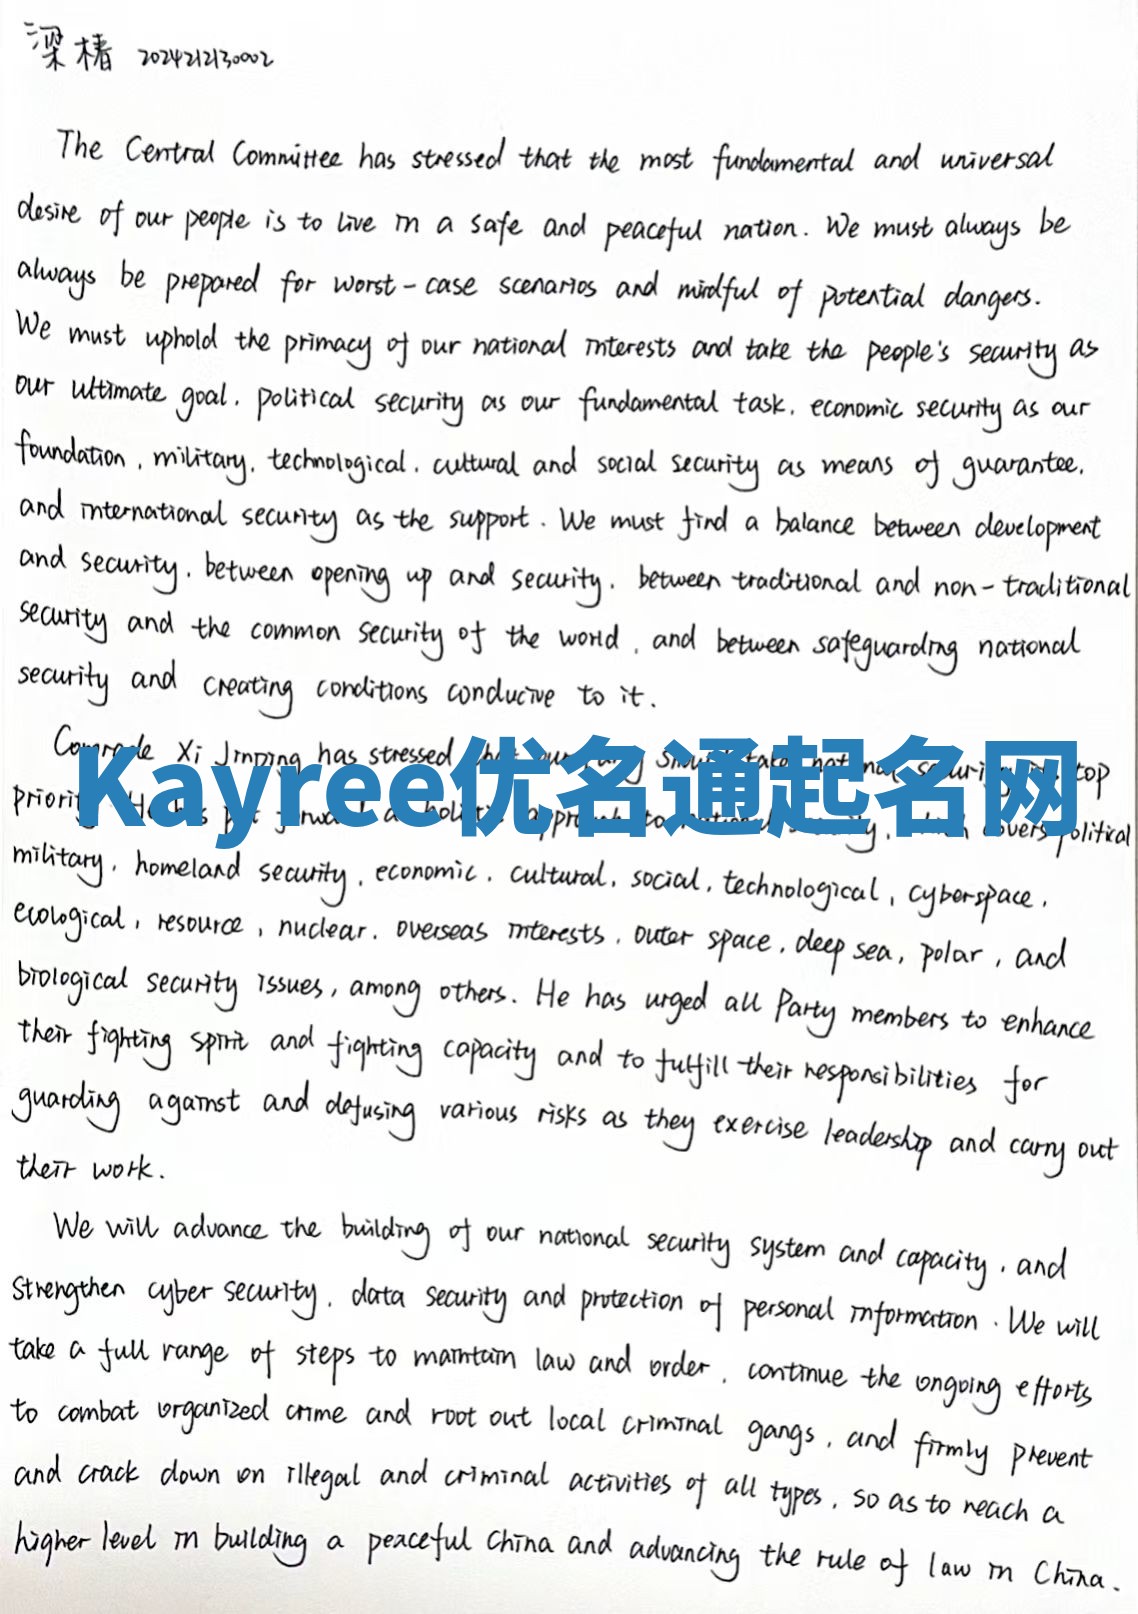 梁椿 2024212130002
The Central Committee has stressed that the most fundamental and universal
desire of our people is to live in a safe and peaceful nation. We must always be
always be prepared for worst-case scenarios and mindful of potential dangers.
We must uphold the primacy of our national interests and take the people's security as
our ultimate goal, political security as our fundamental task, economic security as our
foundation, military, technological, cultural and social security as means of guarantee,
and international security as the support. We must find a balance between development
and security, between opening up and security, between traditional and non-traditional
security and the common security of the world, and between safeguarding national
security and creating conditions conducive to it.
Comrade Xi Jinping has stressed top
Kayree优名通起名网
political
military, homeland security, economic, cultural, social, technological, cyberspace,
ecological, resource, nuclear, overseas interests, outer space, deep sea, polar, and
biological security issues, among others. He has urged all Party members to enhance
their fighting spirit and fighting capacity and to fulfill their responsibilities for
guarding against and defusing various risks as they exercise leadership and carry out
their work.
We will advance the building of our national security system and capacity, and
strengthen cyber security, data security and protection of personal information. We will
take a full range of steps to maintain law and order, continue the ongoing efforts
to combat organized crime and root out local criminal gangs, and firmly prevent
and crack down on illegal and criminal activities of all types, so as to reach a
higher level in building a peaceful China and advancing the rule of law in China.